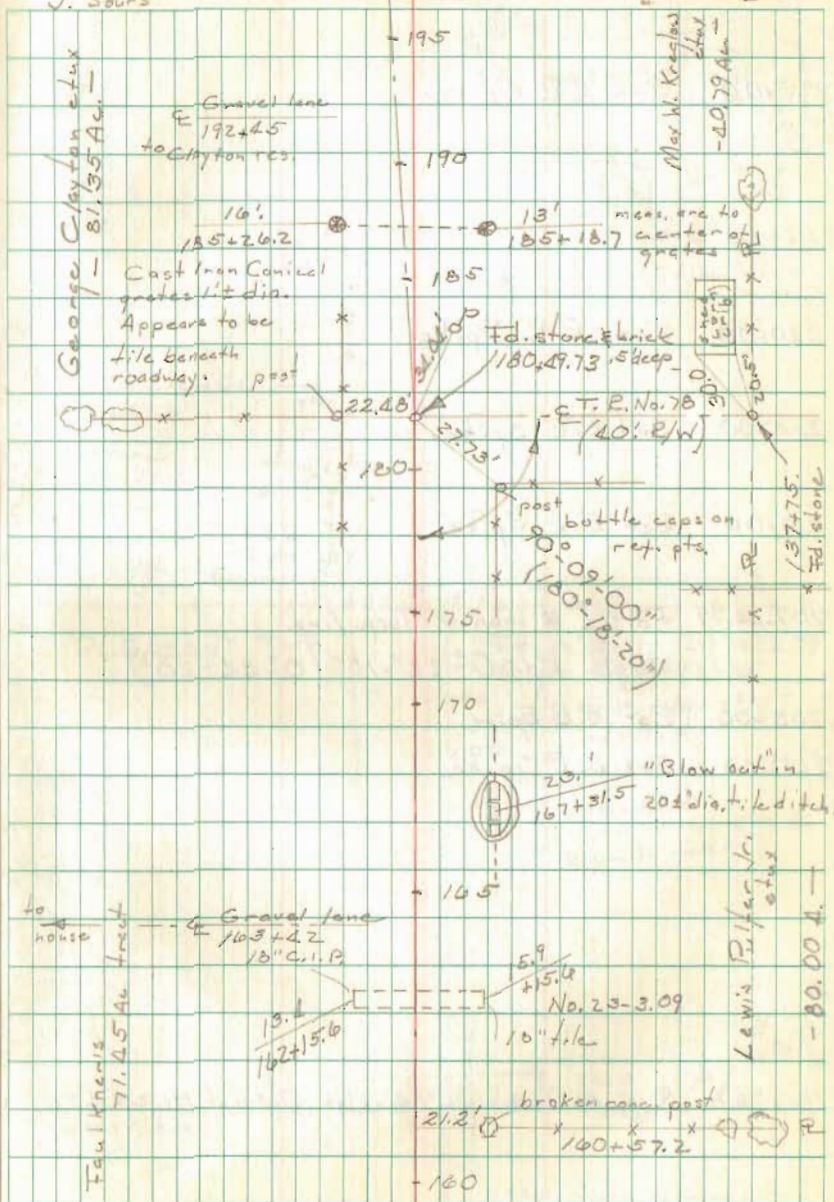 J. Sours
195
George Clayton etux
- 81.35 Ac. -
Max W. Kreglow
etux
- 40.79 Ac. -
℄ Gravel lane
192+45
to Clayton res.
190
16'.
185+26.2
13'
185+18.7
meas. are to
center of
grates
Cast Iron Conical
grates 1'± dia.
Appears to be
tile beneath
roadway.
185
post
22.48'
Fd. stone & brick
180+49.73 .5' deep
shed
(corn
crib)
30.0
20.5'
℄ T.R. No. 78
(40'. R/W)
27.73'
180
post
bottle caps on
ref. pts.
90°-09'-00"
(180°-18'-20")
137+75.
Fd. stone
PL
PL
175
170
20.'
167+31.5
"Blow out" in
20±" dia. tile ditch
165
to
house
℄ Gravel lane
163+42
18" C.I.P.
15.9
+15.6
No. 23-3.09
18" tile
13.1
162+15.6
Faulkner's
71.45 Ac tract
Lewis Pulfer Jr.
etux
- 80.00 A. -
21.2'
broken conc. post
160+57.2
PL
160